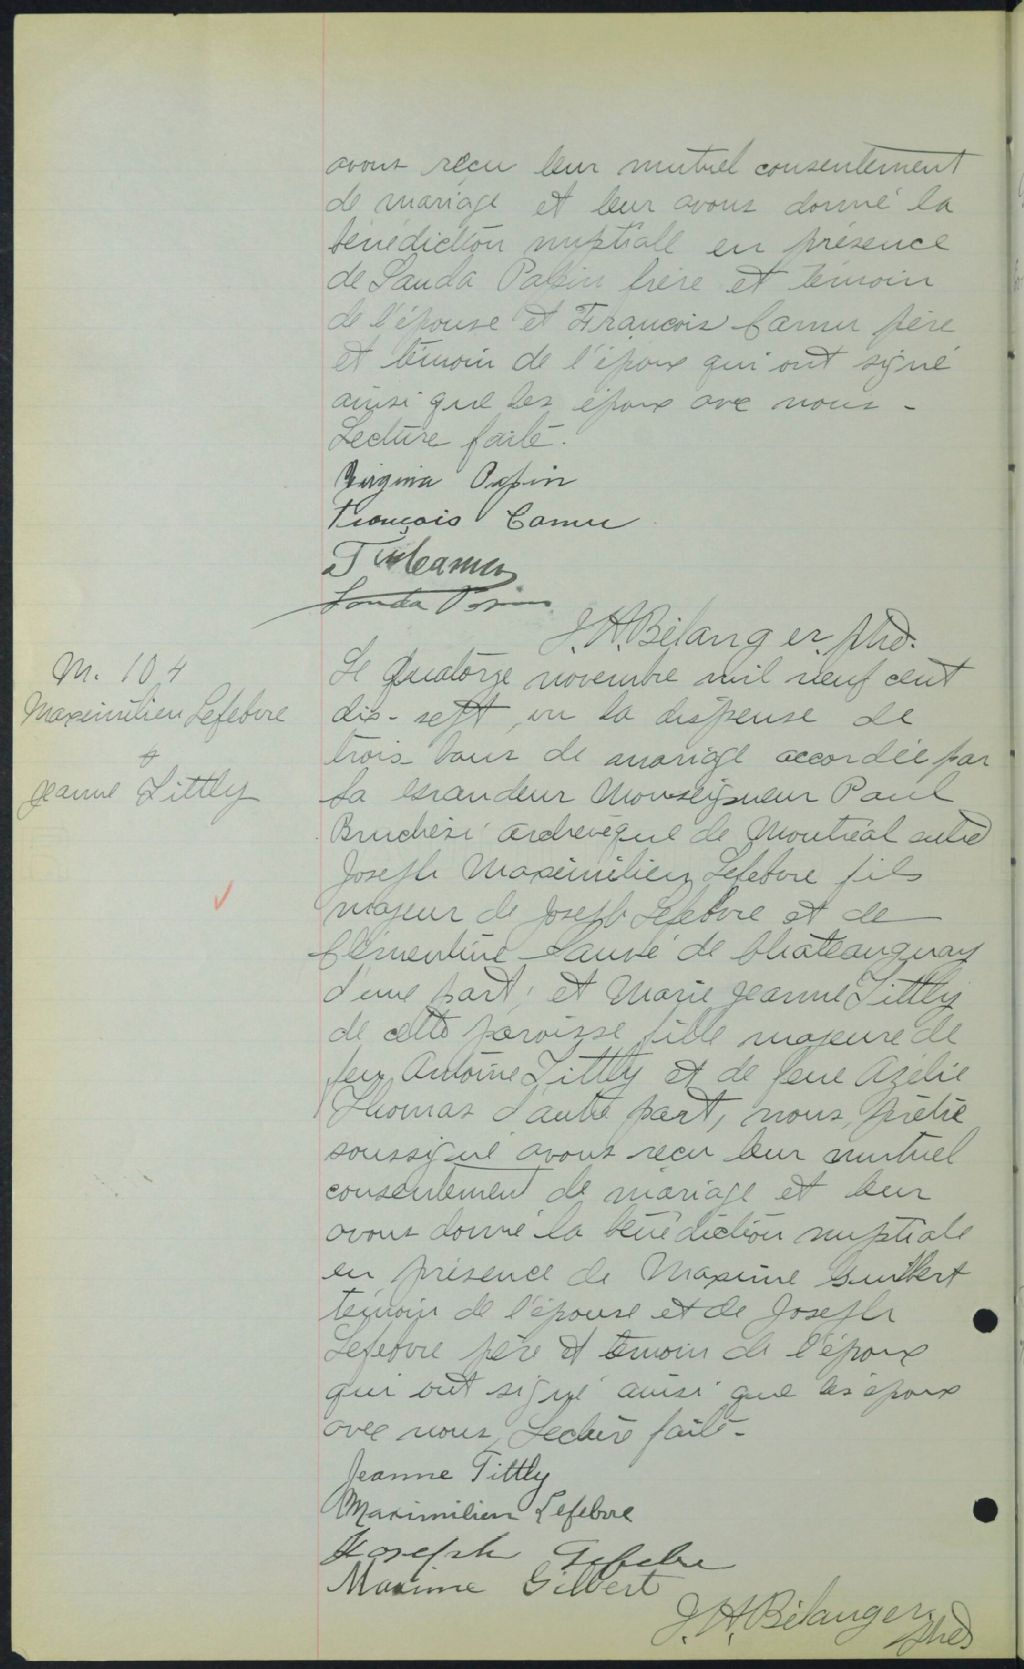 avons reçu leur mutuel consentement
de mariage et leur avons donné la
bénédiction nuptiale en présence
de Lauda Papin frère et témoin
de l'épouse et François Camu père
et témoin de l'époux qui ont signé
ainsi que les époux avec nous -
Lecture faite.
Virginia Papin
François Camu
Camu
Lauda Papin
J. A. Bélanger, ptre.
M. 104
Maximilien Lefebvre
&
Jeanne Tittly
Le quatorze novembre mil neuf cent
dix-sept, vu la dispense de
trois bans de mariage accordée par
Sa Grandeur Monseigneur Paul
Bruchési archevêque de Montréal entre
Joseph Maximilien Lefebvre fils
majeur de Joseph Lefebvre et de
Clémentine de Chateauguay
d'une part; et Marie Jeanne Tittly
de cette paroisse fille majeure de
feu Antoine Tittly et de feue Azélie
Thomas d'autre part, nous, prêtre
soussigné avons reçu leur mutuel
consentement de mariage et leur
avons donné la bénédiction nuptiale
en présence de Maxime Guilbert
témoin de l'épouse et de Joseph
Lefebvre père et témoin de l'époux
qui ont signé ainsi que les époux
avec nous, Lecture faite -
Jeanne Tittly
Maximilien Lefebvre
Joseph Lefebvre
Maxime Gilbert
J. A. Bélanger, ptre